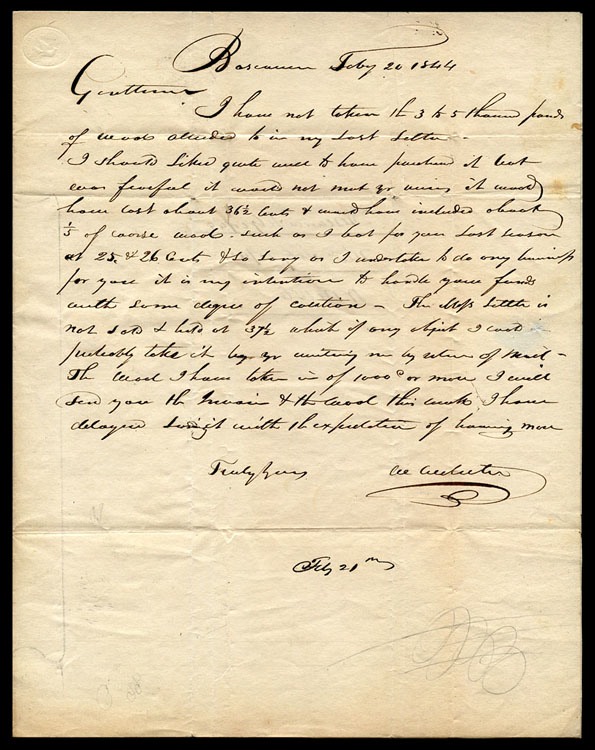 Boscawen Feby 20 1844
Gentlemen
I have not taken the 3 to 5 thousand pounds
of wool alluded to in my last Letter -
I should liked quite well to have purchased it but
was fearful it would not meet yr views it would
have cost about 36½ Cents & would have included about
⅕ of coarse wool such as I bot for you last season
at 25 & 26 Cents & so long as I undertake to do any business
for you it is my intention to handle your funds
with some degree of caution - The Messrs Little is
not sold & held at 37½ which if any object I could
probably take it by yr writing me by return of mail -
The wool I have taken in of 1000 or more I will
send you the Invoice & the wool this week I have
delayed with the expectation of having more
Truly yours Webster
Feby 21